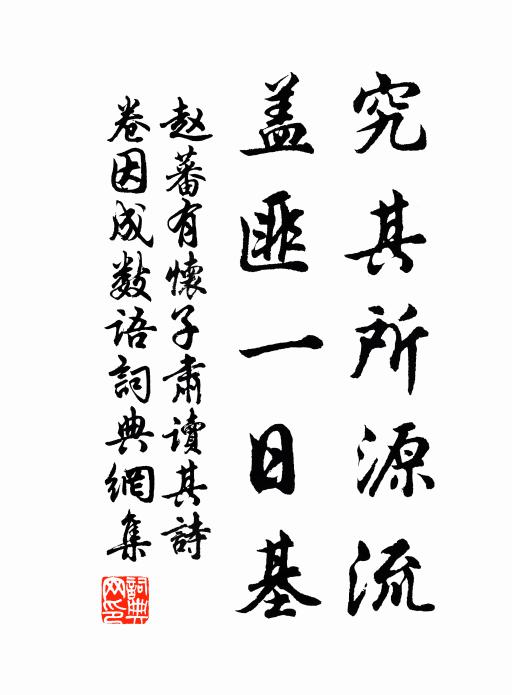 究其所源流
盖匪一日基
赵蕃有懷子肅讀其詩
卷因成数语詞典網集
詞典網印